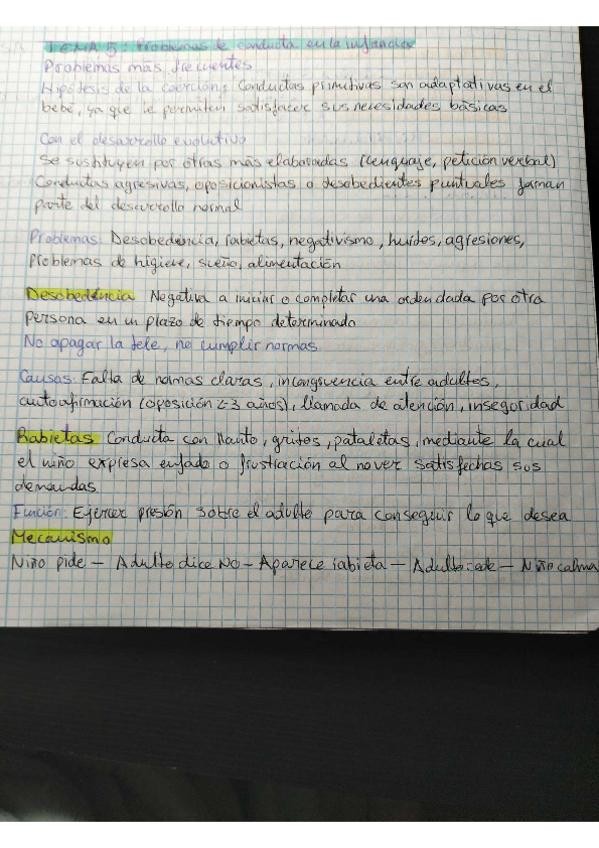 TEMA 5: Problemas de conducta en la infancia
Problemas más frecuentes
Hipótesis de la coerción: Conductas primitivas son adaptativas en el
bebé, ya que le permiten satisfacer sus necesidades básicas
Con el desarrollo evolutivo
Se sustituyen por otras más elaboradas (lenguaje, petición verbal)
Conductas agresivas, oposicionistas o desobedientes puntuales forman
parte del desarrollo normal
Problemas: Desobediencia, rabietas, negativismo, huidas, agresiones,
problemas de higiene, sueño, alimentación
Desobediencia Negativa a iniciar o completar una orden dada por otra
persona en un plazo de tiempo determinado
No apagar la tele, no cumplir normas
Causas: Falta de normas claras, incongruencia entre adultos,
autoafirmación (oposición <3 años), llamada de atención, inseguridad
Rabietas Conducta con llanto, gritos, pataletas, mediante la cual
el niño expresa enfado o frustración al no ver satisfechas sus
demandas
Función: Ejercer presión sobre el adulto para conseguir lo que desea
Mecanismo
Niño pide — Adulto dice No — Aparece rabieta — Adulto cede — Niño calma